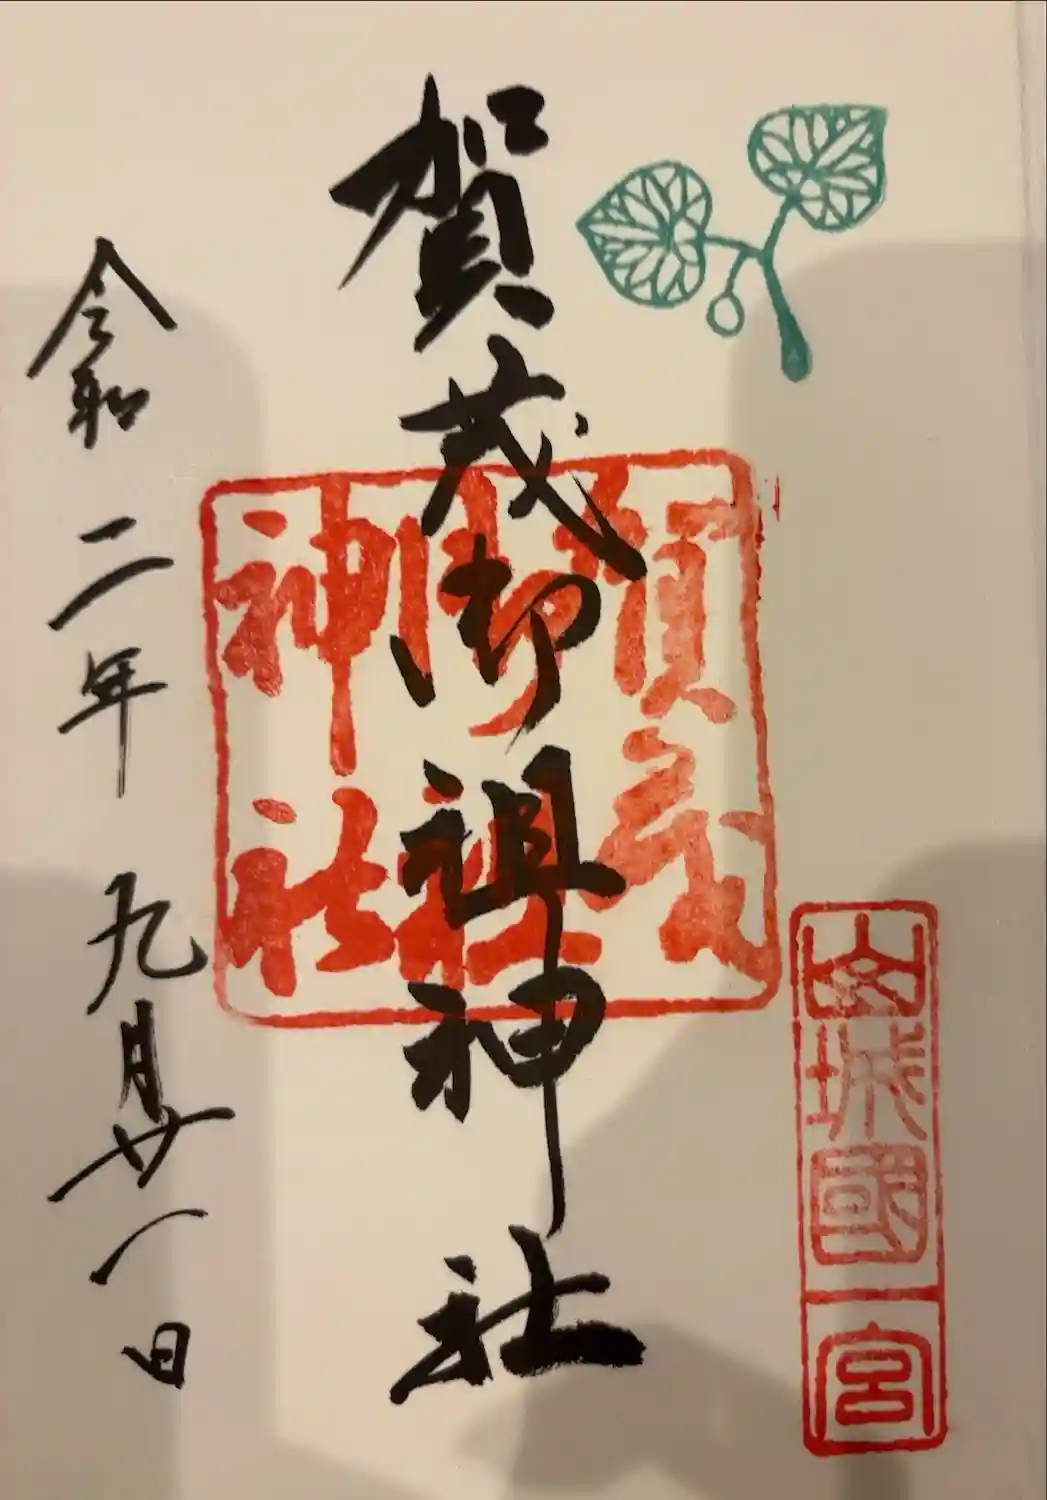 山城國一宮
賀茂御祖神社
賀茂
御祖
神社
令和二年九月廿一日